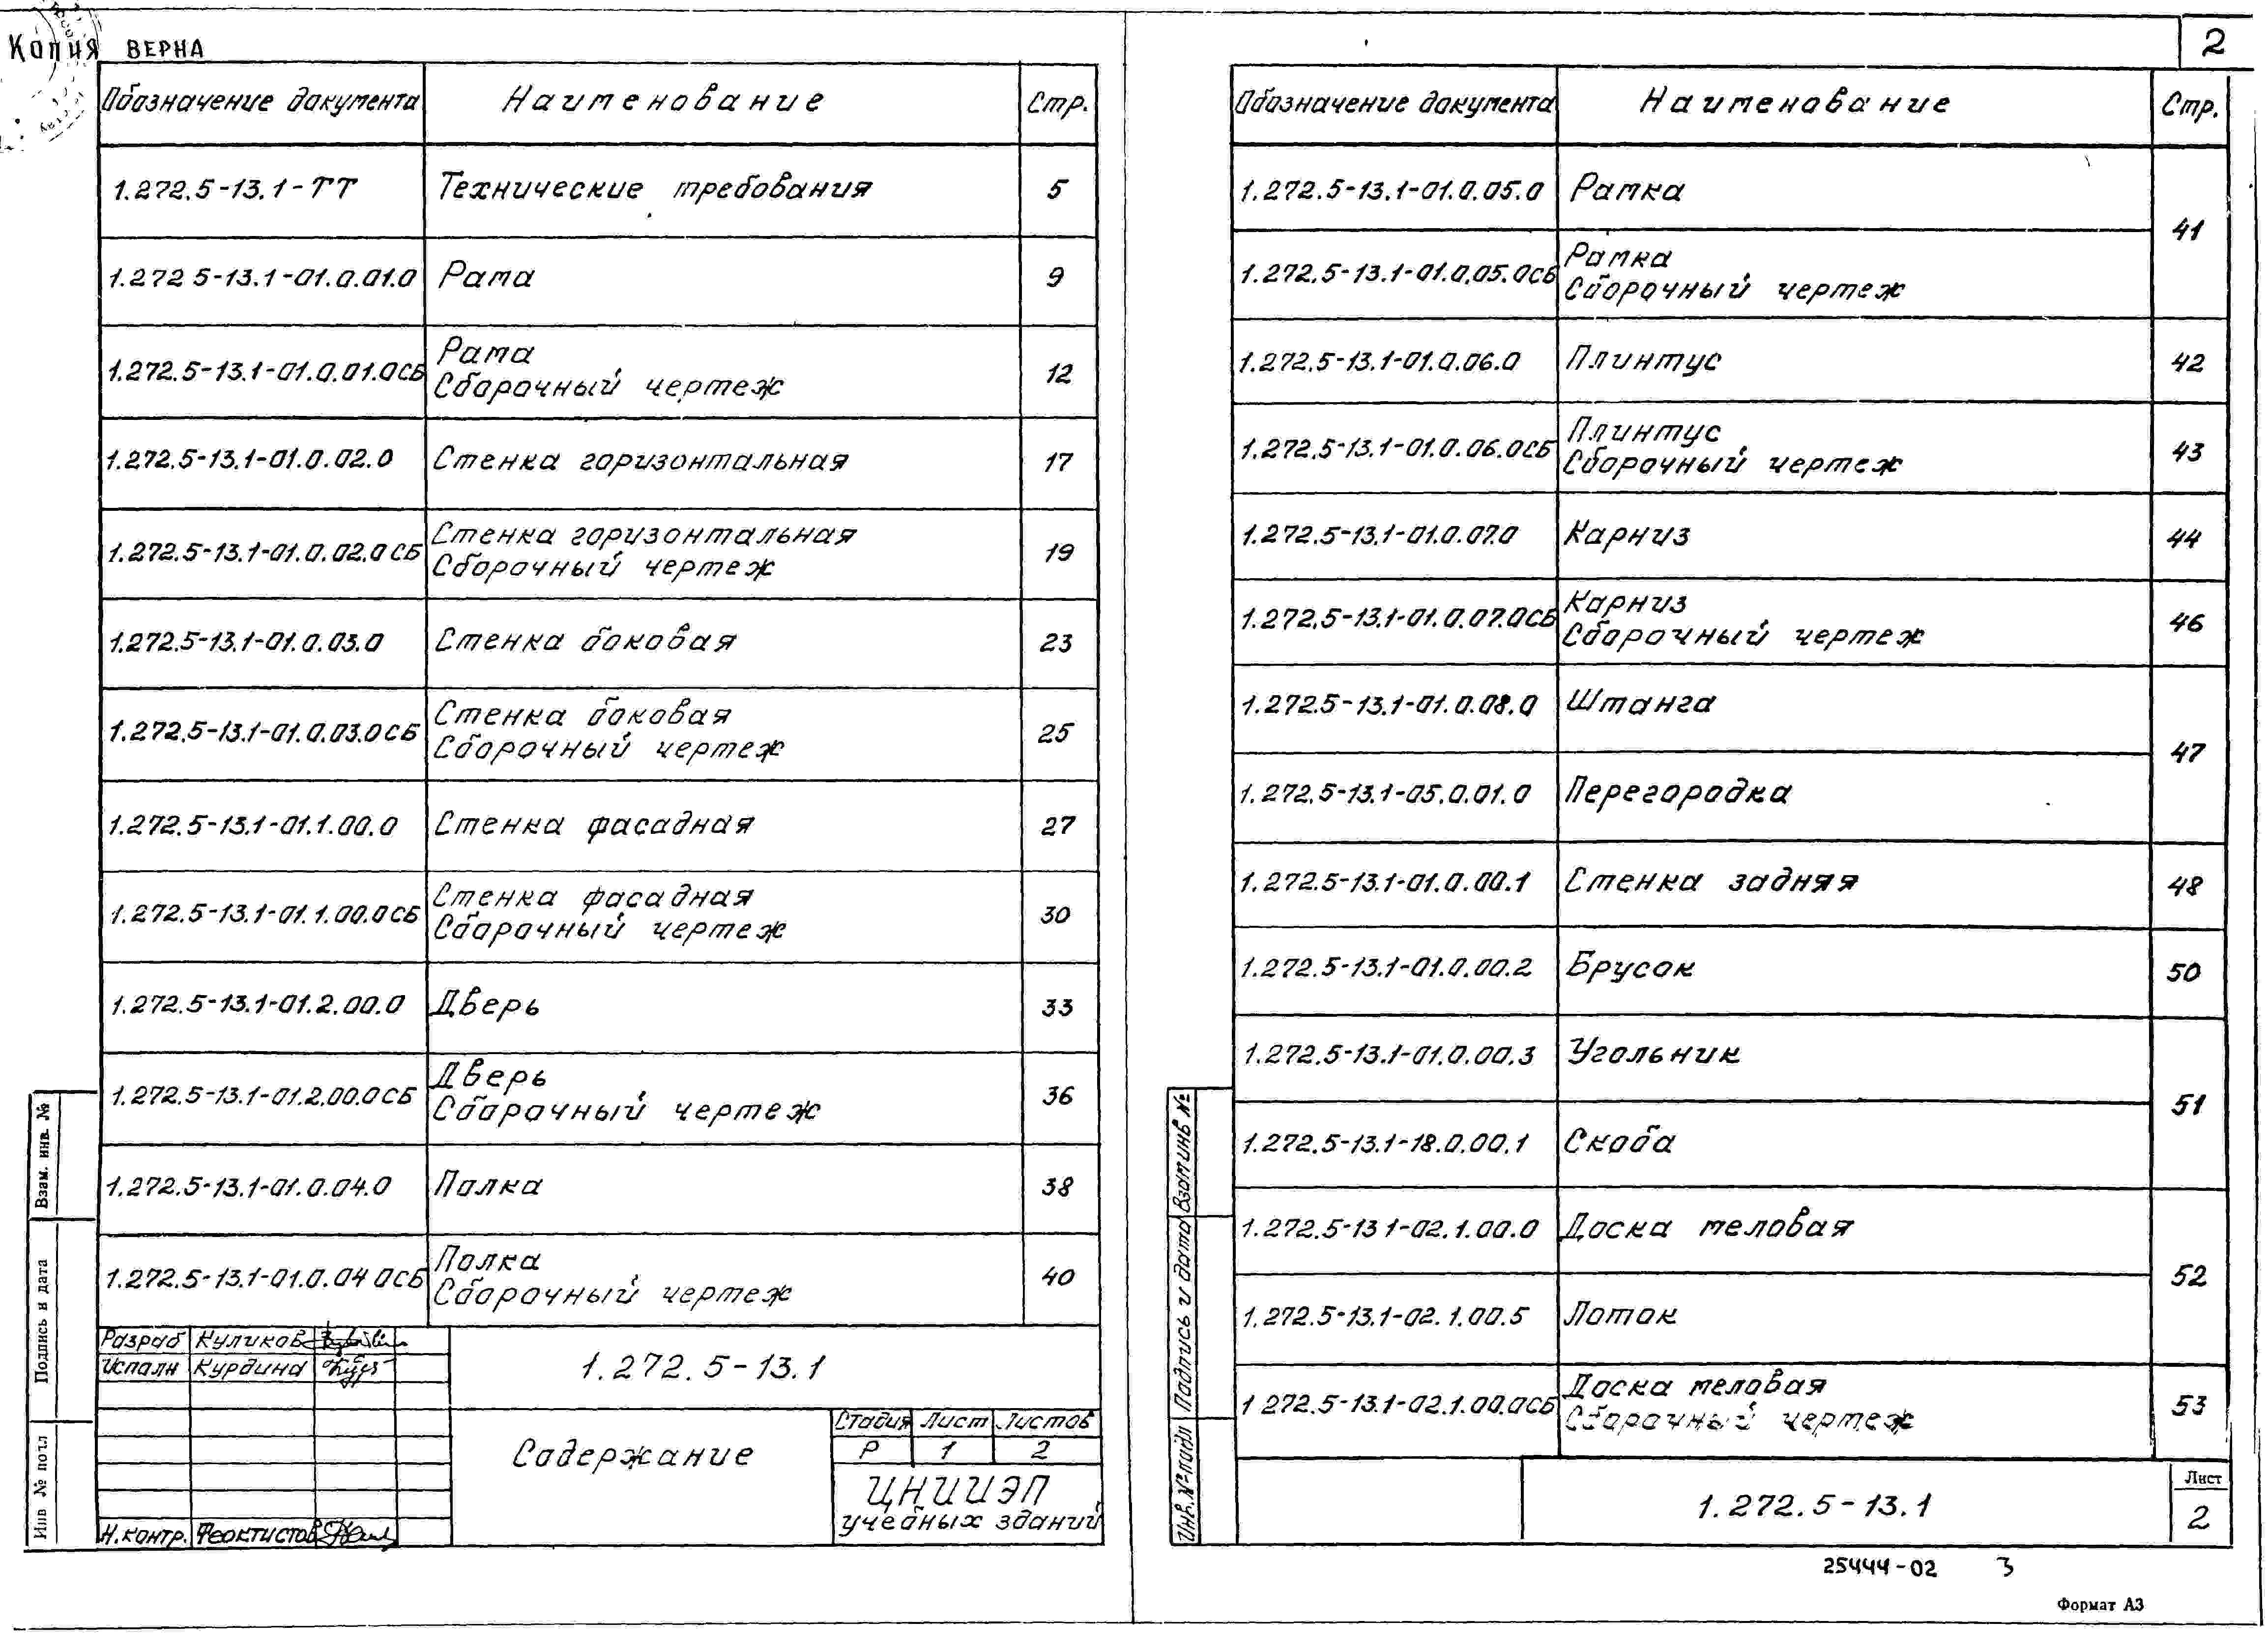 Копия ВЕРНА
Обозначение документа Наименование Стр.
1.272.5-13.1-ТТ Технические требования 5
1.272 5-13.1-01.0.01.0 Рама 9
1.272.5-13.1-01.0.01.0СБ Рама
Сборочный чертеж 12
1.272.5-13.1-01.0.02.0 Стенка горизонтальная 17
1.272.5-13.1-01.0.02.0СБ Стенка горизонтальная
Сборочный чертеж 19
1.272.5-13.1-01.0.03.0 Стенка боковая 23
1.272.5-13.1-01.0.03.0СБ Стенка боковая
Сборочный чертеж 25
1.272.5-13.1-01.1.00.0 Стенка фасадная 27
1.272.5-13.1-01.1.00.0СБ Стенка фасадная
Сборочный чертеж 30
1.272.5-13.1-01.2.00.0 Дверь 33
1.272.5-13.1-01.2.00.0СБ Дверь
Сборочный чертеж 36
1.272.5-13.1-01.0.04.0 Полка 38
1.272.5-13.1-01.0.04 0СБ Полка
Сборочный чертеж 40
Разраб Куликов
Исполн Курдина
Н.контр. Феоктистов
1.272.5-13.1
Содержание
Стадия Лист Листов
Р 1 2
ЦНИИЭП
учебных зданий
Взам. инв. №
Подпись и дата
Инв № подл
2
Обозначение документа Наименование Стр.
1.272.5-13.1-01.0.05.0 Рамка
41
1.272.5-13.1-01.0.05.0СБ Рамка
Сборочный чертеж
1.272.5-13.1-01.0.06.0 Плинтус 42
1.272.5-13.1-01.0.06.0СБ Плинтус
Сборочный чертеж 43
1.272.5-13.1-01.0.07.0 Карниз 44
1.272.5-13.1-01.0.07.0СБ Карниз
Сборочный чертеж 46
1.272.5-13.1-01.0.08.0 Штанга
47
1.272.5-13.1-05.0.01.0 Перегородка
1.272.5-13.1-01.0.00.1 Стенка задняя 48
1.272.5-13.1-01.0.00.2 Брусок 50
1.272.5-13.1-01.0.00.3 Угольник
51
1.272.5-13.1-18.0.00.1 Скоба
1.272.5-13 1-02.1.00.0 Доска меловая
52
1.272.5-13.1-02.1.00.5 Лоток
1 272.5-13.1-02.1.00.0СБ Доска меловая
Сборочный чертеж 53
1.272.5-13.1
Лист
2
Взам инв №
Подпись и дата
Инв. № подл
25444-02 3
Формат А3